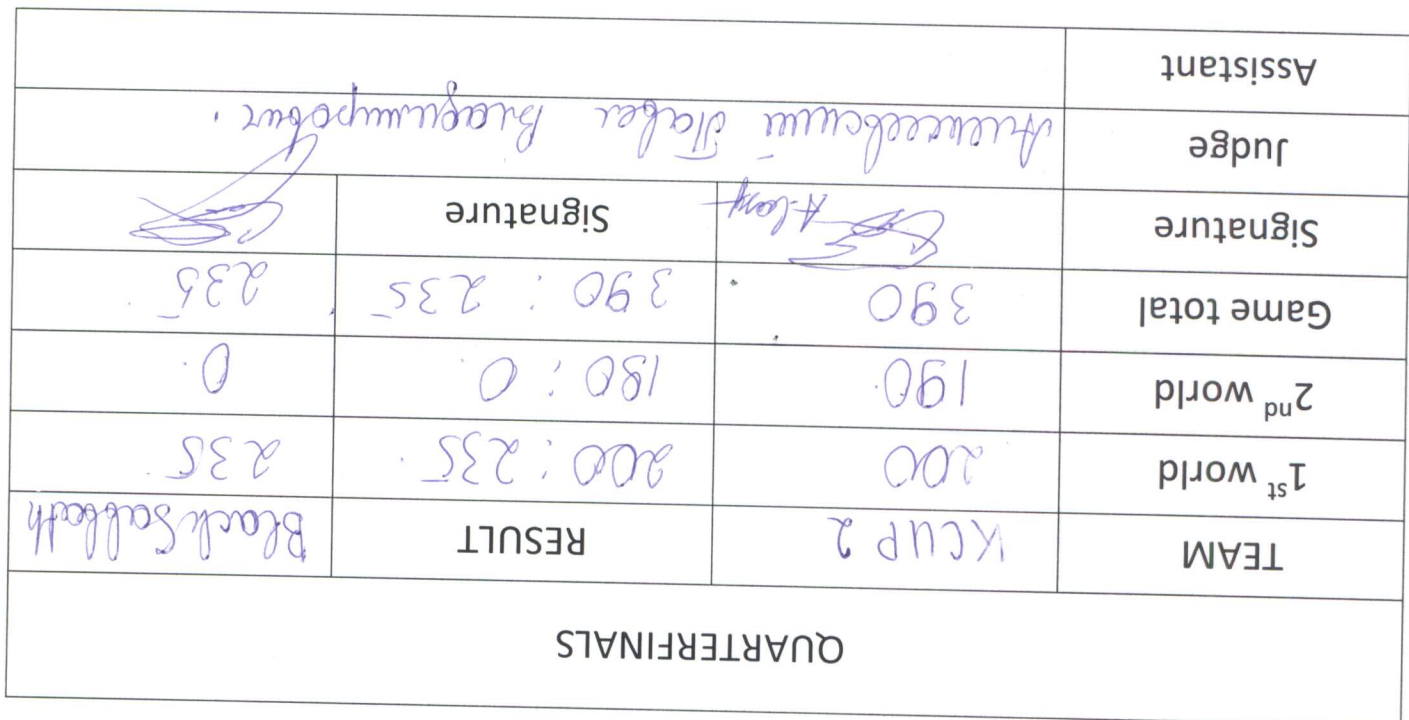 QUARTERFINALS
TEAM KCUP 2 RESULT Black Sabbath
1st world 200 200 : 235 235
2nd world 190 190 : 0 0
Game total 390 390 : 235 235
Signature Signature
Judge Павел Владимирович.
Assistant